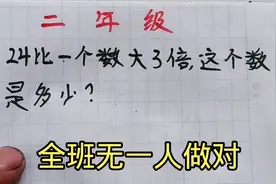 二年级
24比一个数大3倍,这个数
是多少?
全班无一人做对